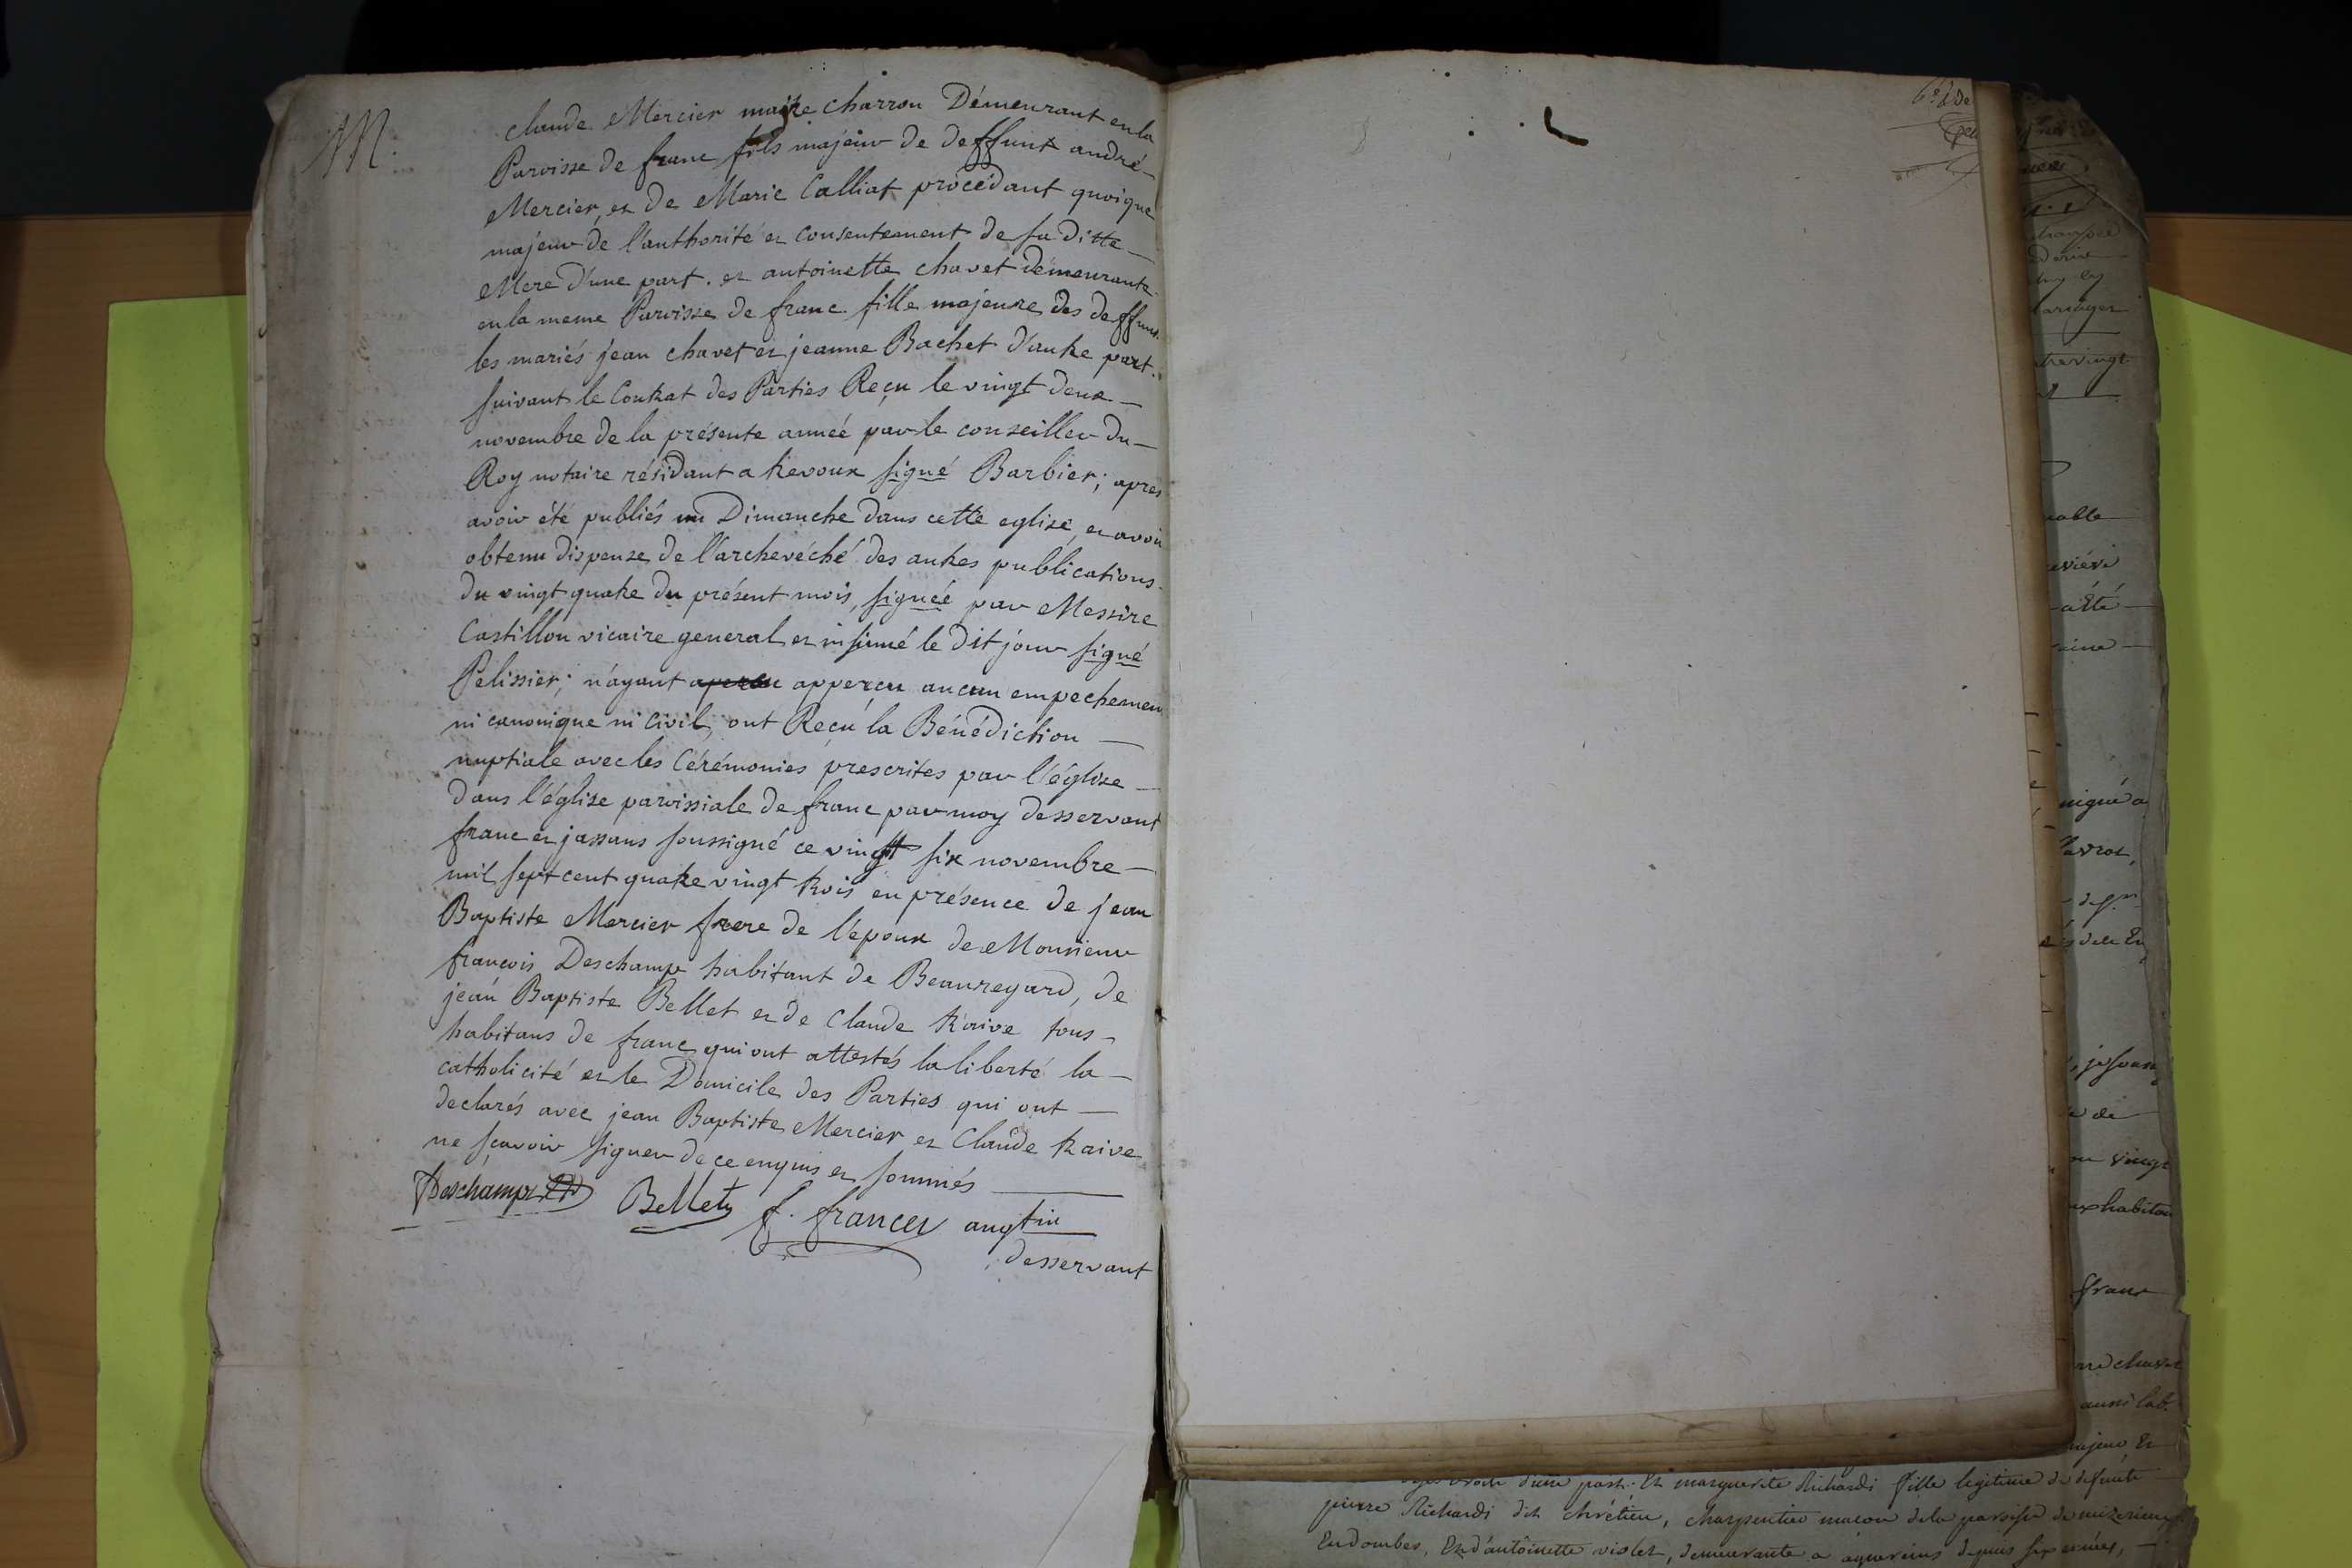 M.
Claude Mercier maitre charron Démeurant en la
Paroisse de franc fils majeur de deffunt andré
Mercier, et de Marie Calliat procédant quoique
majeur de l'authorité et consentement de sa ditte
Mere d'une part. et antoinette chavet démeurante
en la meme Paroisse de franc fille majeure des deffunts
les mariés jean chavet et jeanne Bachet d'autre part.
suivant le Contrat des Parties Reçu le vingt deux
novembre de la présente année par le conseiller du
Roy notaire résidant a trevoux signé Barbier; apres
avoir été publiés un Dimanche dans cette eglise, et avoir
obtenu dispense de l'archevéché des autres publications
du vingt quatre du présent mois, signée par Messire
Castillon vicaire general et insinué le dit jour signé
Pelissier; n'ayant apercu apperçu aucun empechemen
ni canonique ni civil, ont Reçu la Bénédiction
nuptiale avec les Cérémonies prescrites par l'église
dans l'église paroissiale de franc par moy desservant
franc et jassans soussigné ce vingt six novembre
mil sept cent quatre vingt trois en présence de jean
Baptiste Mercier frere de l'epoux de Monsieur
francois Deschamp habitant de Beauregard, de
jean Baptiste Bellet et de Claude traive tous
habitans de franc qui ont attestés la liberté la
catholicité et le Domicile des Parties qui ont
declarés avec jean Baptiste Mercier et Claude traive
ne sçavoir signer de ce enquis et sommés
Deschamp Bellet f. francer augtin
desservant
d'une part. Et marguerite Richardi fille legitime de defunte
pierre Richardi dit chrétien, charpentier macon de la paroisse de mizerieux
En dombes, Et d'antoinette violet, demeurante a depuis six années,